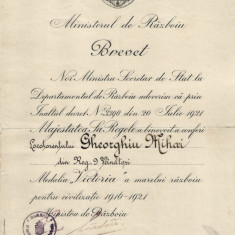 Ministerul de Răzbоiu
Brevet
Noi Ministru Secretar de Stat la
Departamentul de Războiu adeverim că prin
Înaltul decret No. 3390 din 20 Iulie 1921
Majestatea Sa Regele a binevoit a conferi
Locotenentului Gheorghiu Mihai
din Reg. 9 Vânători
Medalia „Victoria" a marelui războiu
pentru civilizație 1916-1921
Ministru de Războiu